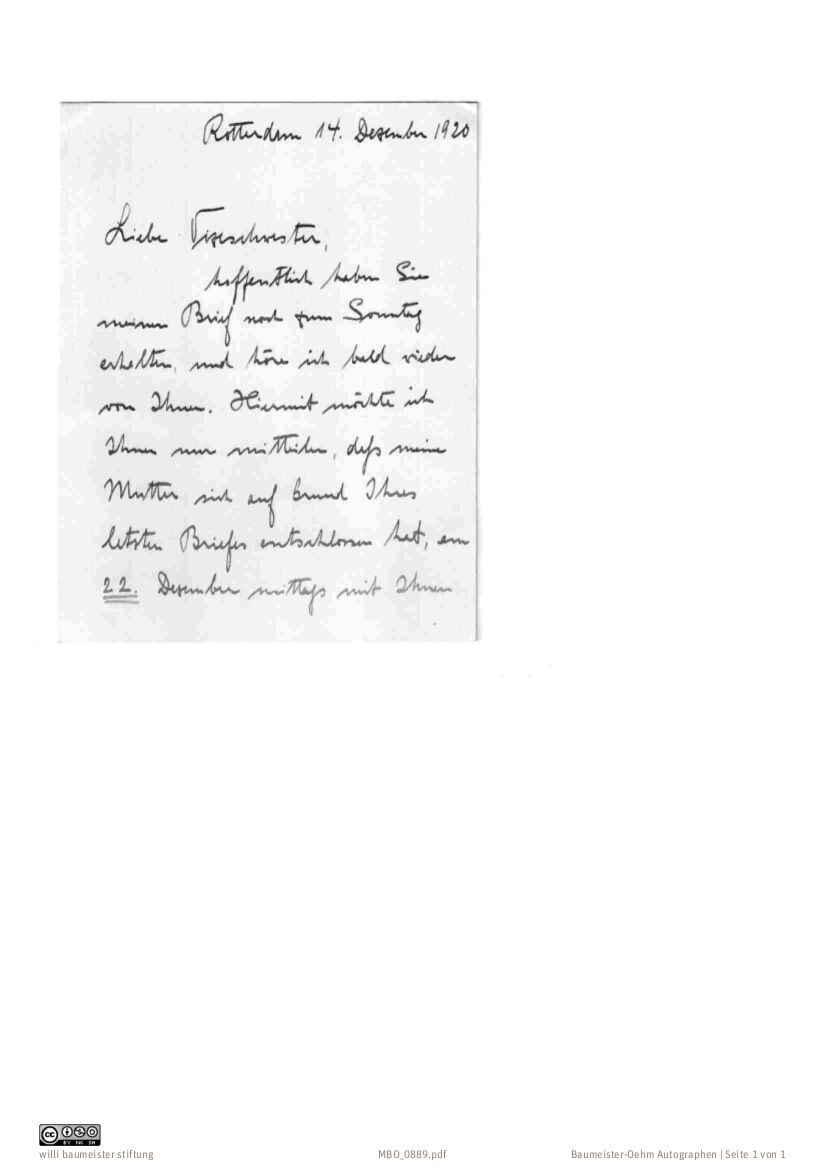 Rotterdam 14. Dezember 1920
Liebe Vizeschwester,
hoffentlich haben Sie
meinen Brief noch zum Sonntag
erhalten, und höre ich bald wieder
von Ihnen. Hiermit möchte ich
Ihnen nur mitteilen, daß meine
Mutter sich auf Grund Ihres
letzten Briefes entschlossen hat, am
22. Dezember mittags mit Ihnen
CC BY NC SA
willi baumeister stiftung
MBO_0889.pdf
Baumeister-Oehm Autographen | Seite 1 von 1